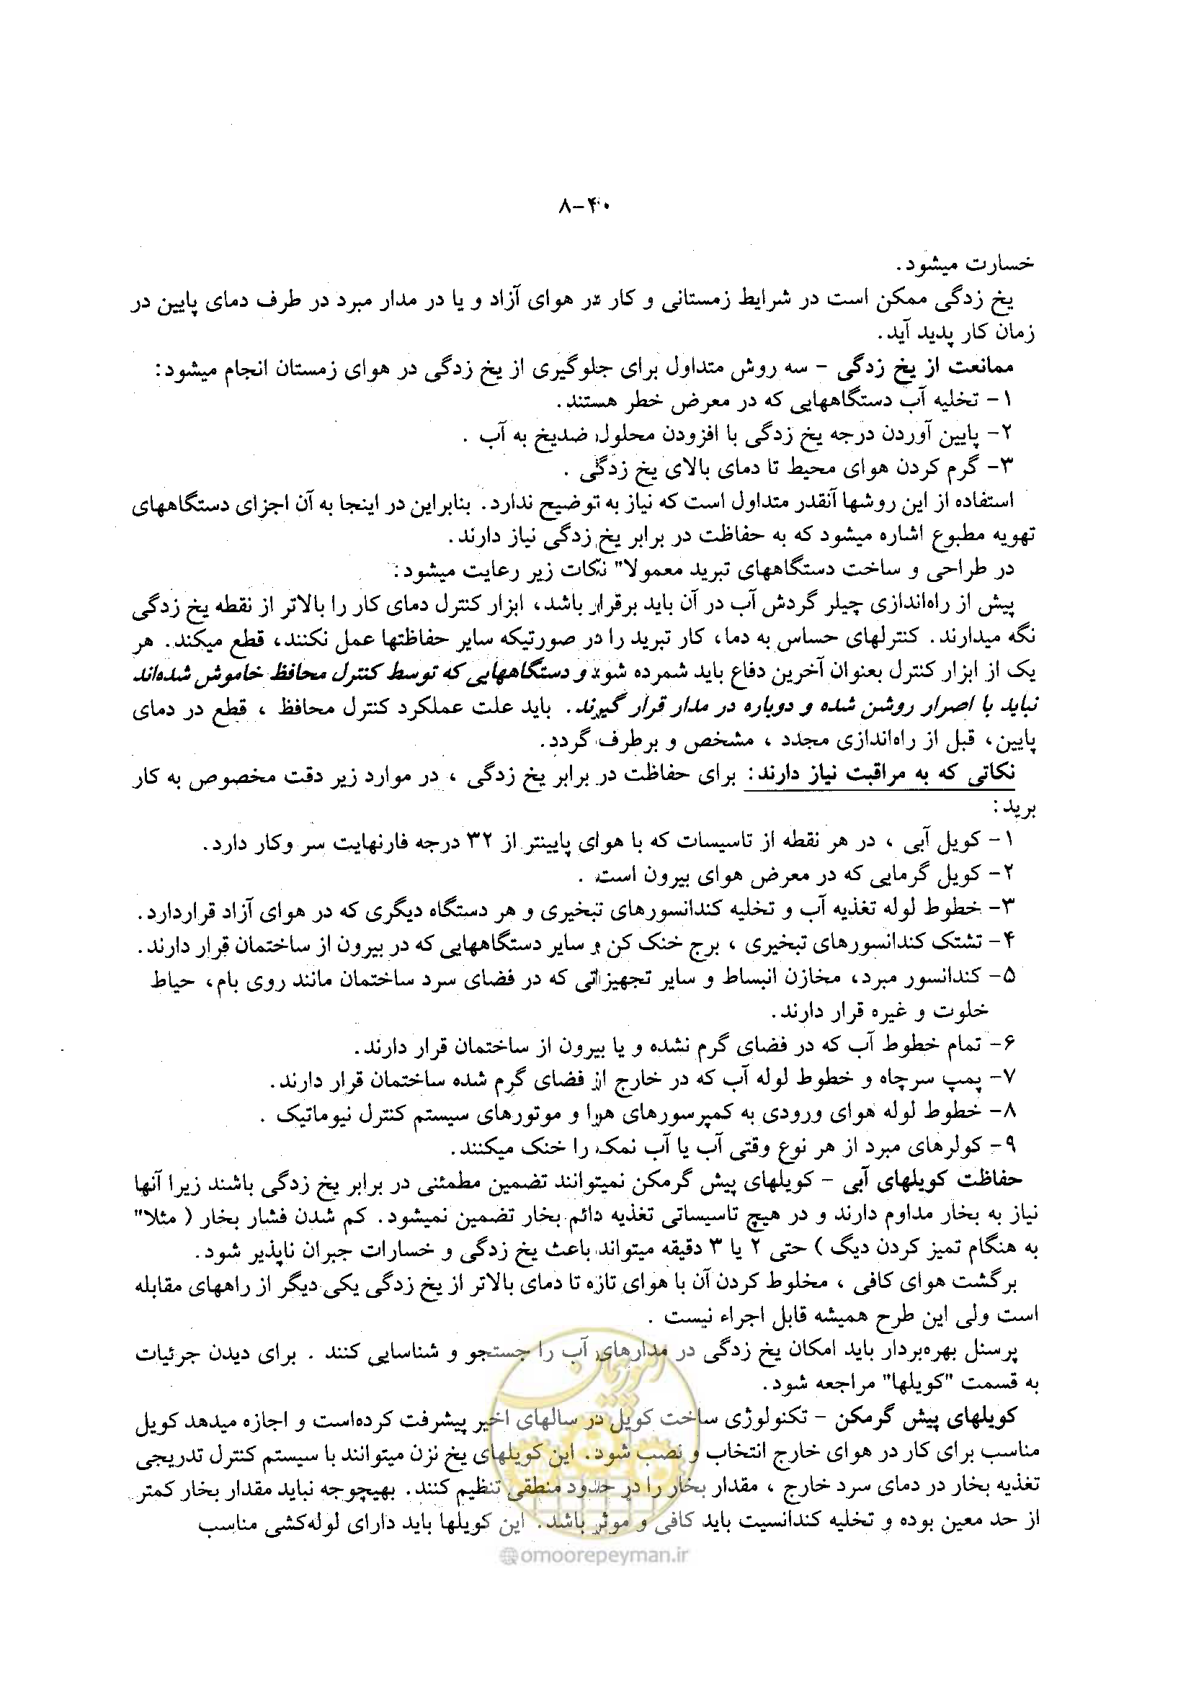 ۸-۴۰
خسارت میشود.
یخ زدگی ممکن است در شرایط زمستانی و کار در هوای آزاد و یا در مدار مبرد در طرف دمای پایین در
زمان کار پدید آید.
ممانعت از یخ زدگی - سه روش متداول برای جلوگیری از یخ زدگی در هوای زمستان انجام میشود:
۱- تخلیه آب دستگاههایی که در معرض خطر هستند.
۲- پایین آوردن درجه یخ زدگی با افزودن محلول ضدیخ به آب .
۳- گرم کردن هوای محیط تا دمای بالای یخ زدگی .
استفاده از این روشها آنقدر متداول است که نیاز به توضیح ندارد. بنابراین در اینجا به آن اجزای دستگاههای
تهویه مطبوع اشاره میشود که به حفاظت در برابر یخ زدگی نیاز دارند.
در طراحی و ساخت دستگاههای تبرید معمولا" نکات زیر رعایت میشود:
پیش از راه‌اندازی چیلر گردش آب در آن باید برقرار باشد، ابزار کنترل دمای کار را بالاتر از نقطه یخ زدگی
نگه میدارند. کنترلهای حساس به دما، کار تبرید را در صورتیکه سایر حفاظتها عمل نکنند، قطع میکند. هر
یک از ابزار کنترل بعنوان آخرین دفاع باید شمرده شود و دستگاههایی که توسط کنترل محافظ خاموش شده‌اند
نباید با اصرار روشن شده و دوباره در مدار قرار گیرند. باید علت عملکرد کنترل محافظ ، قطع در دمای
پایین، قبل از راه‌اندازی مجدد ، مشخص و برطرف گردد.
نکاتی که به مراقبت نیاز دارند: برای حفاظت در برابر یخ زدگی ، در موارد زیر دقت مخصوص به کار
برید:
۱- کویل آبی ، در هر نقطه از تاسیسات که با هوای پایینتر از ۳۲ درجه فارنهایت سر وکار دارد.
۲- کویل گرمایی که در معرض هوای بیرون است .
۳- خطوط لوله تغذیه آب و تخلیه کندانسورهای تبخیری و هر دستگاه دیگری که در هوای آزاد قراردارد.
۴- تشتک کندانسورهای تبخیری ، برج خنک کن و سایر دستگاههایی که در بیرون از ساختمان قرار دارند.
۵- کندانسور مبرد، مخازن انبساط و سایر تجهیزاتی که در فضای سرد ساختمان مانند روی بام، حیاط
خلوت و غیره قرار دارند.
۶- تمام خطوط آب که در فضای گرم نشده و یا بیرون از ساختمان قرار دارند.
۷- پمپ سرچاه و خطوط لوله آب که در خارج از فضای گرم شده ساختمان قرار دارند.
۸- خطوط لوله هوای ورودی به کمپرسورهای هوا و موتورهای سیستم کنترل نیوماتیک .
۹- کولرهای مبرد از هر نوع وقتی آب یا آب نمک را خنک میکنند.
حفاظت کویلهای آبی - کویلهای پیش گرمکن نمیتوانند تضمین مطمئنی در برابر یخ زدگی باشند زیرا آنها
نیاز به بخار مداوم دارند و در هیچ تاسیساتی تغذیه دائم بخار تضمین نمیشود. کم شدن فشار بخار ( مثلا"
به هنگام تمیز کردن دیگ ) حتی ۲ یا ۳ دقیقه میتواند باعث یخ زدگی و خسارات جبران ناپذیر شود.
برگشت هوای کافی ، مخلوط کردن آن با هوای تازه تا دمای بالاتر از یخ زدگی یکی دیگر از راههای مقابله
است ولی این طرح همیشه قابل اجراء نیست .
پرسنل بهره‌بردار باید امکان یخ زدگی در مدارهای آب را جستجو و شناسایی کنند . برای دیدن جرئیات
به قسمت "کویلها" مراجعه شود.
کویلهای پیش گرمکن - تکنولوژی ساخت کویل در سالهای اخیر پیشرفت کرده‌است و اجازه میدهد کویل
مناسب برای کار در هوای خارج انتخاب و نصب شود. این کویلهای یخ نزن میتوانند با سیستم کنترل تدریجی
تغذیه بخار در دمای سرد خارج ، مقدار بخار را در حدود منطقی تنظیم کنند. بهیچوجه نباید مقدار بخار کمتر
از حد معین بوده و تخلیه کندانسیت باید کافی و موثر باشد. این کویلها باید دارای لوله‌کشی مناسب
امور پیمان
@omoorepeyman.ir